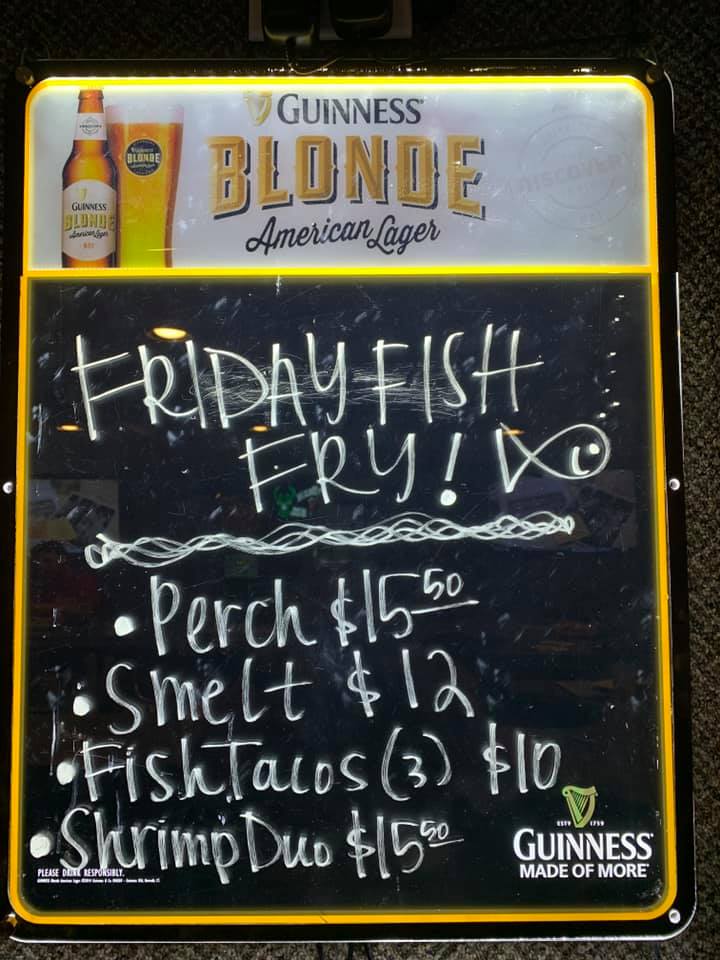 GUINNESS
BLONDE
American Lager
GUINNESS
BLONDE
American Lager
BLONDE
FRIDAY FISH
FRY!
• Perch $15.50
• Smelt $12
• Fish Tacos (3) $10
• Shrimp Duo $15.50
ESTD 1759
GUINNESS
MADE OF MORE
PLEASE DRINK RESPONSIBLY.